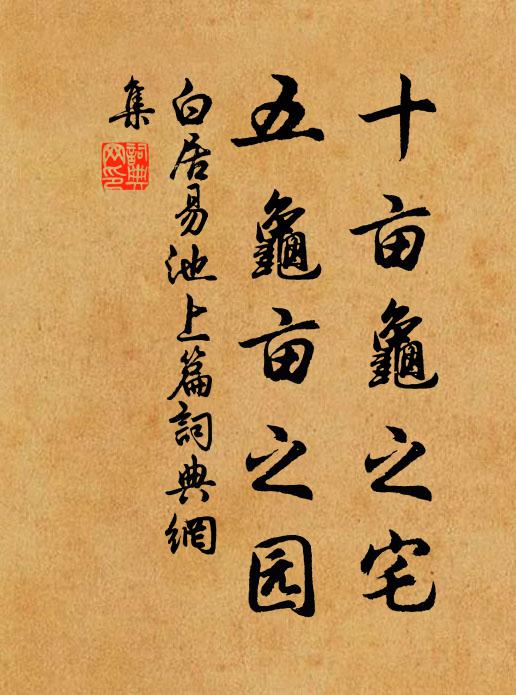 十亩龜之宅
五龜亩之园
白居易池上篇詞典網
集
詞典网印